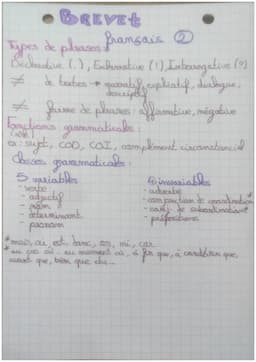 BREVET
français ②
Types de phrases :
Déclarative (.), Exclamative (!), Interrogative (?)
≠ de textes → narratif, explicatif, dialogue,
descriptif
≠ forme de phrases : affirmative, négative
Fonctions grammaticales :
(rôle)
ex : sujet, COD, COI, complément circonstanciel
Classes grammaticales :
5 variables
- verbe
- adjectif
- nom
- déterminant
pronom
4 invariables
- adverbe
- conjonction de coordination*
- conj. de subordination*
- prépositions
* mais, où, est, donc, or, ni, car
* au cas où, au moment où, à fin que, à condition que,
avant que, bien que etc...